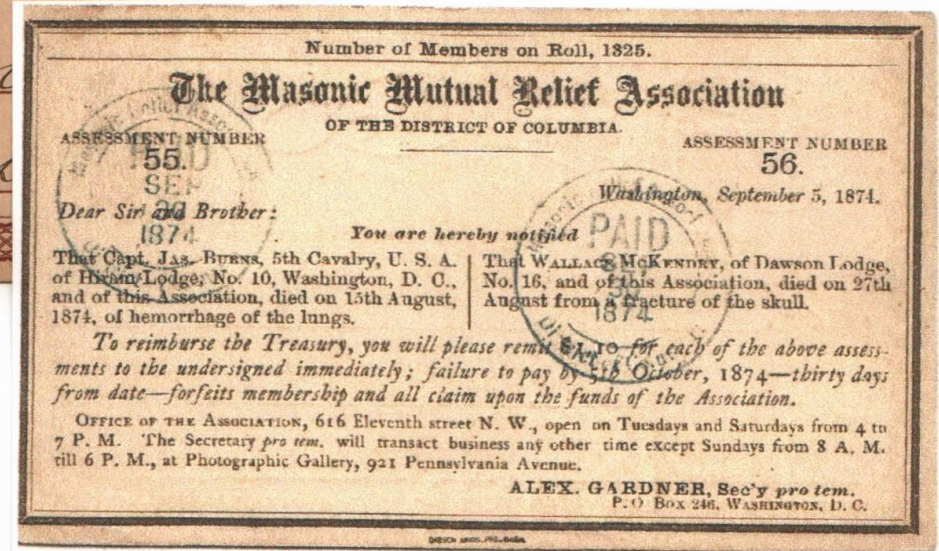 Number of Members on Roll, 1325.
The Masonic Mutual Relief Association
OF THE DISTRICT OF COLUMBIA.
ASSESSMENT NUMBER
55.
ASSESSMENT NUMBER
56.
Washington, September 5, 1874.
Dear Sir and Brother:
You are hereby notified
That Capt. JAS. BURNS, 5th Cavalry, U. S. A.
of Hiram Lodge, No. 10, Washington, D. C.,
and of this Association, died on 15th August,
1874, of hemorrhage of the lungs.
That WALLACE McKENDRY, of Dawson Lodge,
No. 16, and of this Association, died on 27th
August from a fracture of the skull.
To reimburse the Treasury, you will please remit $1.10 for each of the above assess-
ments to the undersigned immediately; failure to pay by 5th October, 1874—thirty days
from date—forfeits membership and all claim upon the funds of the Association.
OFFICE OF THE ASSOCIATION, 616 Eleventh street N. W., open on Tuesdays and Saturdays from 4 to
7 P. M. The Secretary pro tem. will transact business any other time except Sundays from 8 A. M.
till 6 P. M., at Photographic Gallery, 921 Pennsylvania Avenue.
ALEX. GARDNER, Sec'y pro tem.
P. O. Box 246, WASHINGTON, D. C.
PAID
SEP
1874
PAID
1874